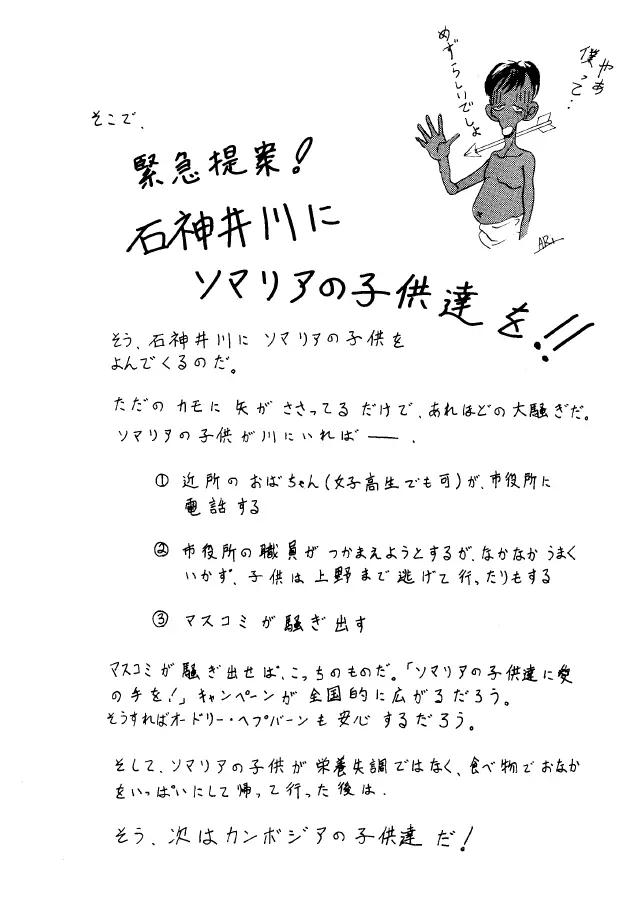 やあ
僕って‥
めずらしいでしょ
そこで、
緊急提案!
石神井川に
ソマリアの子供達を!!
ARI
そう、石神井川に ソマリアの子供を
よんでくるのだ。
ただの カモに 矢が ささってる だけで、あれほどの大騒ぎだ。
ソマリアの子供が川にいれば ――.
① 近所の おばちゃん(女子高生でも可)が、市役所に
電話する
② 市役所の職員が つかまえようとするが、なかなか うまく
いかず、子供は 上野まで 逃げて 行ったりもする
③ マスコミ が 騒ぎ出す
マスコミが 騒ぎ出せば、こっちのものだ。「ソマリアの子供達に愛
の手を!」キャンペーンが 全国的に広がるだろう。
そうすればオードリー・ヘプバーンも 安心 するだろう。
そして、ソマリアの子供が 栄養失調ではなく、食べ物で おなか
をいっぱいにして 帰って 行った 後は、
そう、次はカンボジアの子供達 だ!